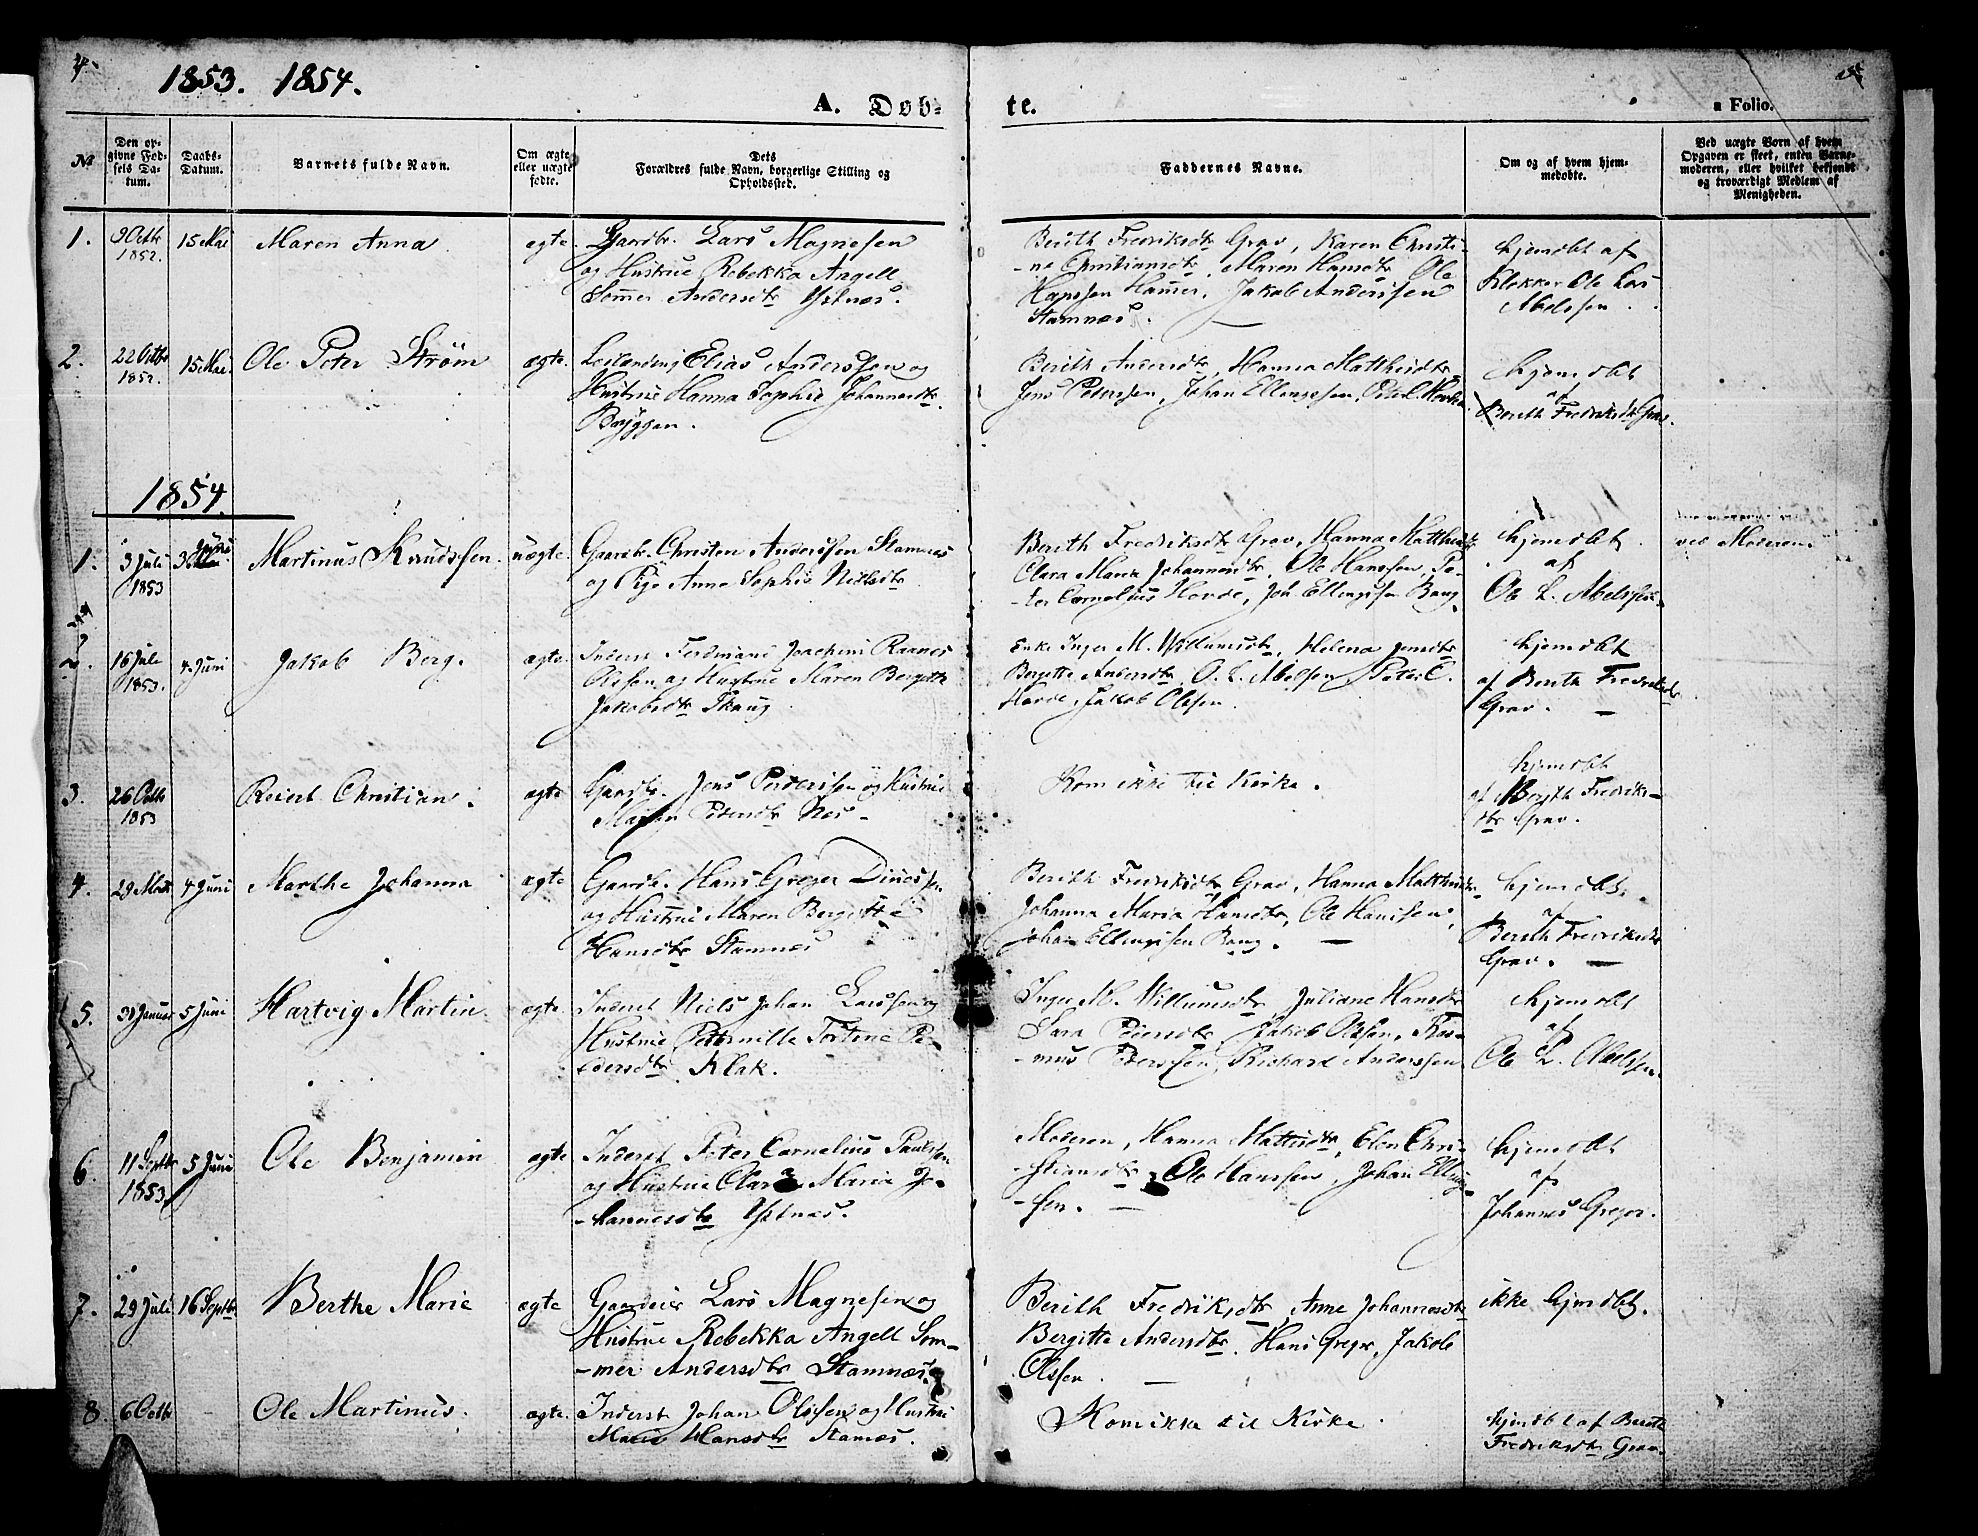 4.
1853. 1854.
A. Døb-
te.
a Folio.
№
Den op-
givne Fød-
sels Da-
tum.
Daabs-
Datum.
Barnets fulde Navn.
Om ægte
eller uægte
fødte.
Dets
Forældres fulde Navn, borgerlige Stilling og
Opholdssted.
Faddernes Navne.
Om og af hvem hjem-
medøbte.
Ved uægte Børn af hvem
Opgaven er skeet, enten Barne-
moderen, eller hvilket bekjendt
og troværdigt Medlem af
Menigheden.
1.
9 Octbr
1852.
15 Mai
Maren Anna
ægte
Gaardbr. Lars Magnesen
og Hustrue Rebekka Angell
Sommer Andersdtr
Berith Fredriksdtr Grav, Karen Christi-
-ne Christiansdtr, Maren Hansdtr Ole
Hanssen Hamer, Jakob Anderssen
Stamnæs.
hjemdøbt af
Klokker Ole Lars
Abelssen.
2.
22 Octbr
1852.
15 Mai
Ole Peter Strøm
ægte.
Elias Anderssen og
Hustrue Hanna Sophie Johannesdtr
Bryggen.
Berith Andersdtr, Hanna Matthisdtr
Jens Pedersen, Johan Ellingsen, Peter C. Hovde
hjemdøbt
af
Berith Fredriksdtr Grav.
1854.
1.
3 Juli
1853
3 Juni
Martinus Knudssen.
uægte
Gaardbr. Christen Anderssen Stamnæs
og Pige Anne Sophie Nielsdtr
Berith Fredriksdtr Grav, Hanna Matthisdtr
Clara Maria Johannesdtr, Ole Hanssen, Pe-
-ter Cornelius Hovde, Joh Ellingsen Baug
hjemdøbt
af
Ole L. Abelssen.
ved Moderen
2.
16 Juli
1853.
4 Juni
Jakob Berg.
ægte
Inderst Ferdinand Joachim Raanes
Olssen og Hustrue Maren Bergitte
Jakobsdtr Skaug
Enke Inger M. Willumsdtr, Helena Jensdtr
Bergitte Andersdtr, O. L. Abelsen, Peter C.
Hovde, Jakob Olssen.
hjemdøbt
af Berith Fredriksdtr
Grav.
3.
26 Octb
1853
Christian.
ægte
Gaardbr. Jens Pederssen og Hustrue
Maren Pedersdtr Næs
Kom ikke til Kirke.
hjemdøbt
af Berith Fredriks-
dtr Grav.
4.
29 Marts
4 Juni
Marthe Johanna
ægte
Gaardbr. Hans Greger
og Hustrue Maren Bergitte
Hansdtr Stamnæs
Berith Fredriksdtr Grav, Hanna Matthisdtr
Johanna Maria Hansdtr, Ole Hanssen,
Johan Ellingsen Baug.
hjemdøbt
af
Berith Fredriksdtr
Grav.
5.
31 Januar
5 Juni
Hartvig Martin
ægte
Inderst Niels Johan Larssen og
Hustrue Petternille Tortine Pe-
-dersdtr Klak.
Inger M. Willumsdtr, Juliane Hansdtr
Sara Pedersdtr, Jakob Olssen, Ras-
-mus Pederssen, Richard Anderssen
hjemdøbt
af
Ole L. Abelssen.
6.
11 Septbr
1853
5 Juni
Ole Benjamin
ægte
Inderst Peter Cornelius Paulssen
og Hustrue Clara Maria Jo-
-hannesdtr
Moderen, Hanna Mattisdtr, Elen Chri-
-stiansdtr, Ole Hanssen, Johan Elling-
-sen.
hjemdøbt
af
Johannes Greger.
7.
29 Juli
16 Septbr
Berthe Marie
ægte
Gaardeier Lars Magnesen og
Hustrue Rebekka Angell Som-
-mer Andersdtr Stamnæs.
Berith Fredriksdtr, Anne Johannesdtr
Bergitte Andersdtr, Hans Greger, Jakob
Olssen.
ikke hjemdøbt.
8.
6 Octbr
Ole Martinus.
ægte.
Inderst Johan Olssen og Hustrue
Marie Hansdtr Stamnæs.
Kom ikke til Kirke.
hjemdøbt af Berith
Fredriksdtr Grav